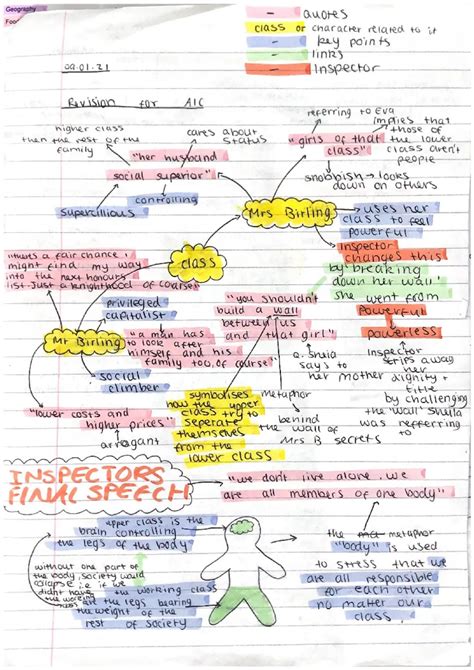 Geography
Food
- quotes
class or character related to it
- key points
- links
- Inspector
09.01.21
Revision for AIC
higher class
then the rest of the
family
cares about
status
referring to Eva
implies that
those of
the lower
class aren't
people
"her husband
social superior"
"girls of that
class"
snobbish → looks
down on others
controlling
supercillious
Mrs Birling
uses her
class to feel
powerful
Inspector
changes this
by 'breaking
down her wall'
she went from
powerful
powerless
Inspector
strips away
her dignity +
title
by challenging
the 'wall' Sheila
was refferring
to
class
"there's a fair chance I
might find my way
into the next honours
list. Just a knighthood of course"
privileged
capitalist
Mr Birling
"a man has
to look after
himself and his
family too of course"
social
climber
"you shouldn't
build a wall
between us
and that girl"
a. Sheila
says to
her mother
"lower costs and
higher prices"
arrogant
symbolises
how the upper
class try to
seperate
themselves
from the
lower class
metaphor
behind
the wall of
Mrs B secrets
INSPECTORS
FINAL SPEECH
"we don't live alone. we
are all members of one body"
upper class is the
brain controlling
the legs of the body
without one part of
the body, society would
collapse i.e if we
didnt have
the working
class
the working class
are the legs bearing
the weight of the
rest of society
the metaphor
"body" is used
to stress that we
are all responsible
for each other
no matter our
class